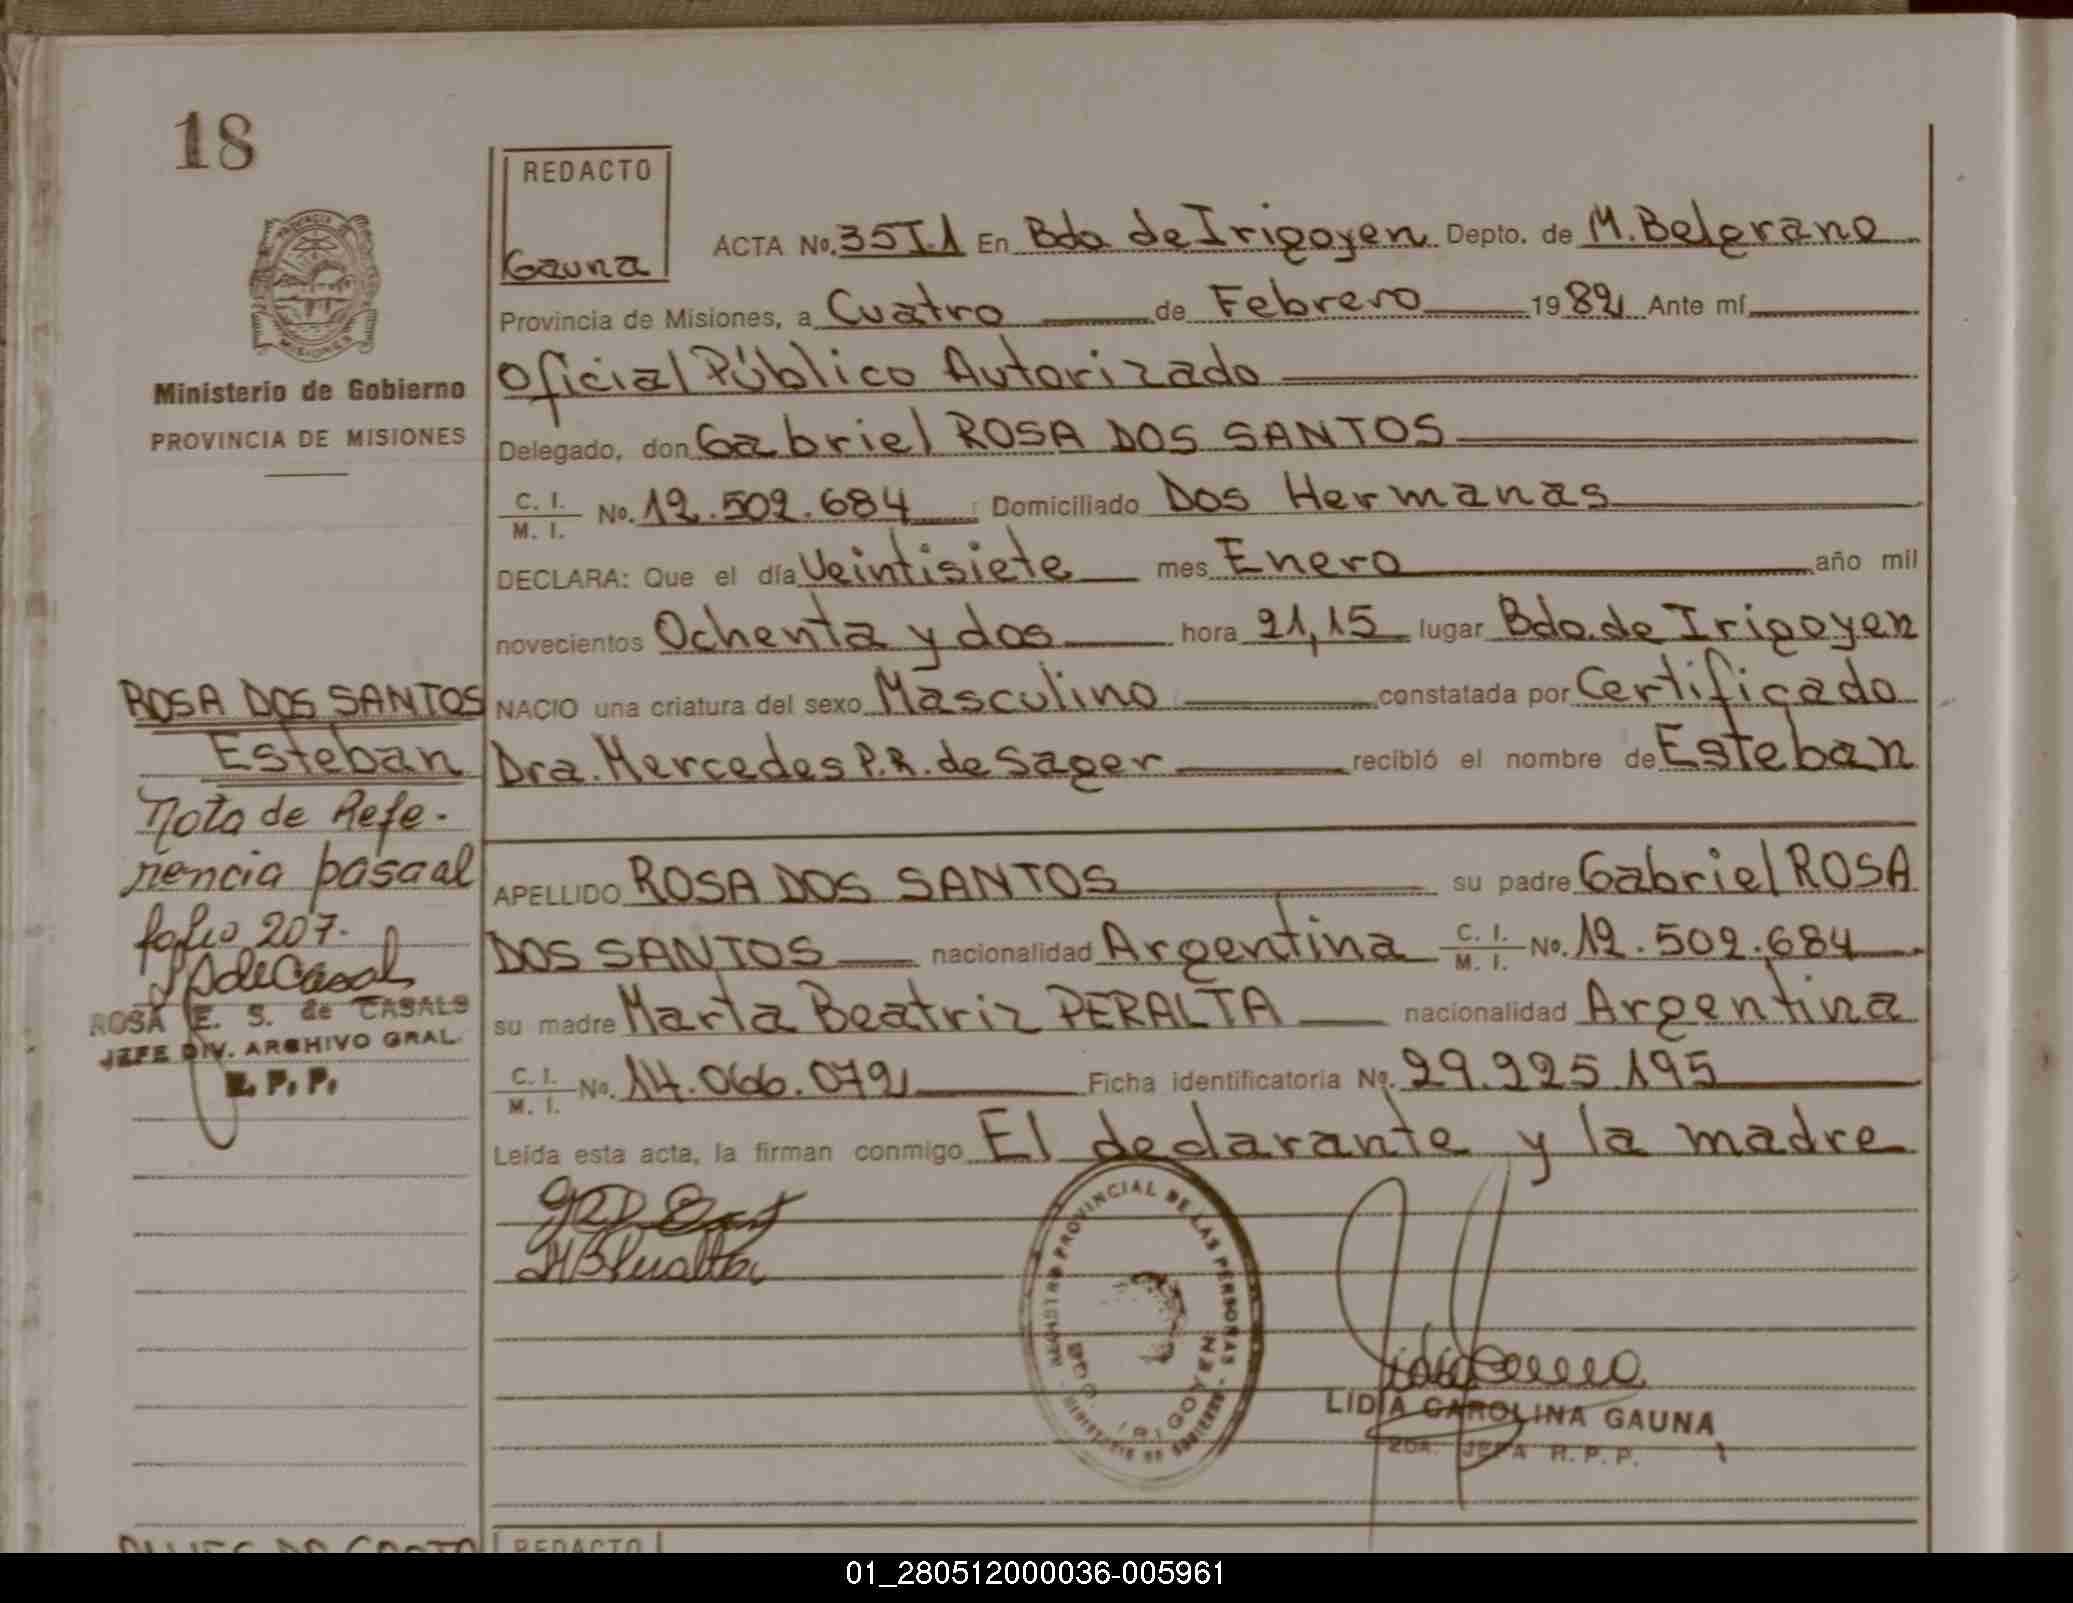 18
REDACTO
Gauna
ACTA No. 35 T.1 En Bdo de Irigoyen Depto. de M. Belgrano
Provincia de Misiones, a Cuatro de Febrero 1982 Ante mí
Oficial Público Autorizado
Delegado, don Gabriel ROSA DOS SANTOS
C. I.
M. I. No. 12.502.684 Domiciliado Dos Hermanas
DECLARA: Que el día Veintisiete mes Enero año mil
novecientos Ochenta y dos hora 21,15 lugar Bdo. de Irigoyen
NACIO una criatura del sexo Masculino constatada por Certificado
Dra. Mercedes P.R. de Sager recibió el nombre de Esteban
APELLIDO ROSA DOS SANTOS su padre Gabriel ROSA
DOS SANTOS nacionalidad Argentina C. I. M. I. No. 12.502.684
su madre Marta Beatriz PERALTA nacionalidad Argentina
C. I.
M. I. No. 14.066.072 Ficha identificatoria No. 29.225.195
Leída esta acta, la firman conmigo El declarante y la madre
REGISTRO PROVINCIAL DE LAS PERSONAS
BDO. IRIGOYEN
LIDIA CAROLINA GAUNA
2DA. JEFA R. P. P.
PROVINCIA
MISIONES
Ministerio de Gobierno
PROVINCIA DE MISIONES
ROSA DOS SANTOS
Esteban
Nota de Refe-
rencia pasa al
folio 207.
ROSA E. S. de CASALS
JEFE DIV. ARCHIVO GRAL.
R. P. P.
REDACTO
01_280512000036-005961